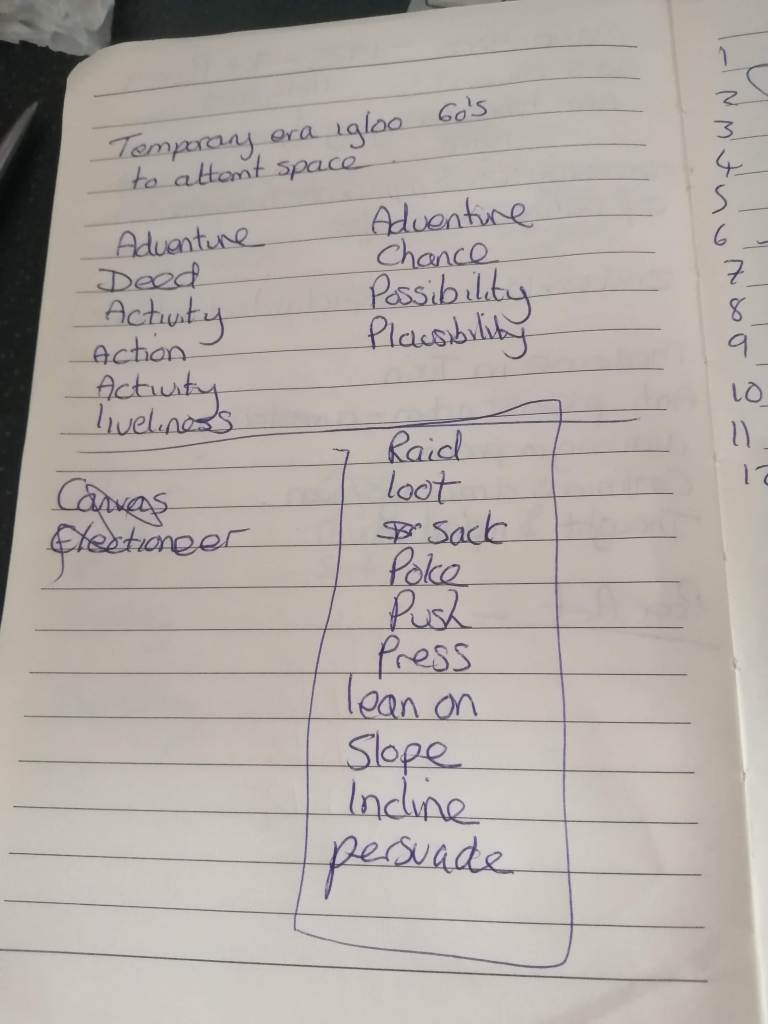 Temporary era igloo 60's
to attomt space
Adventure
Deed
Activity
Action
Activity
liveliness
Adventure
Chance
Possibility
Plausibility
Canvas
Electioneer
Raid
loot
sack
Poke
Push
Press
lean on
Slope
Incline
persuade
1
2
3
4
5
6
7
8
9
10
11
12